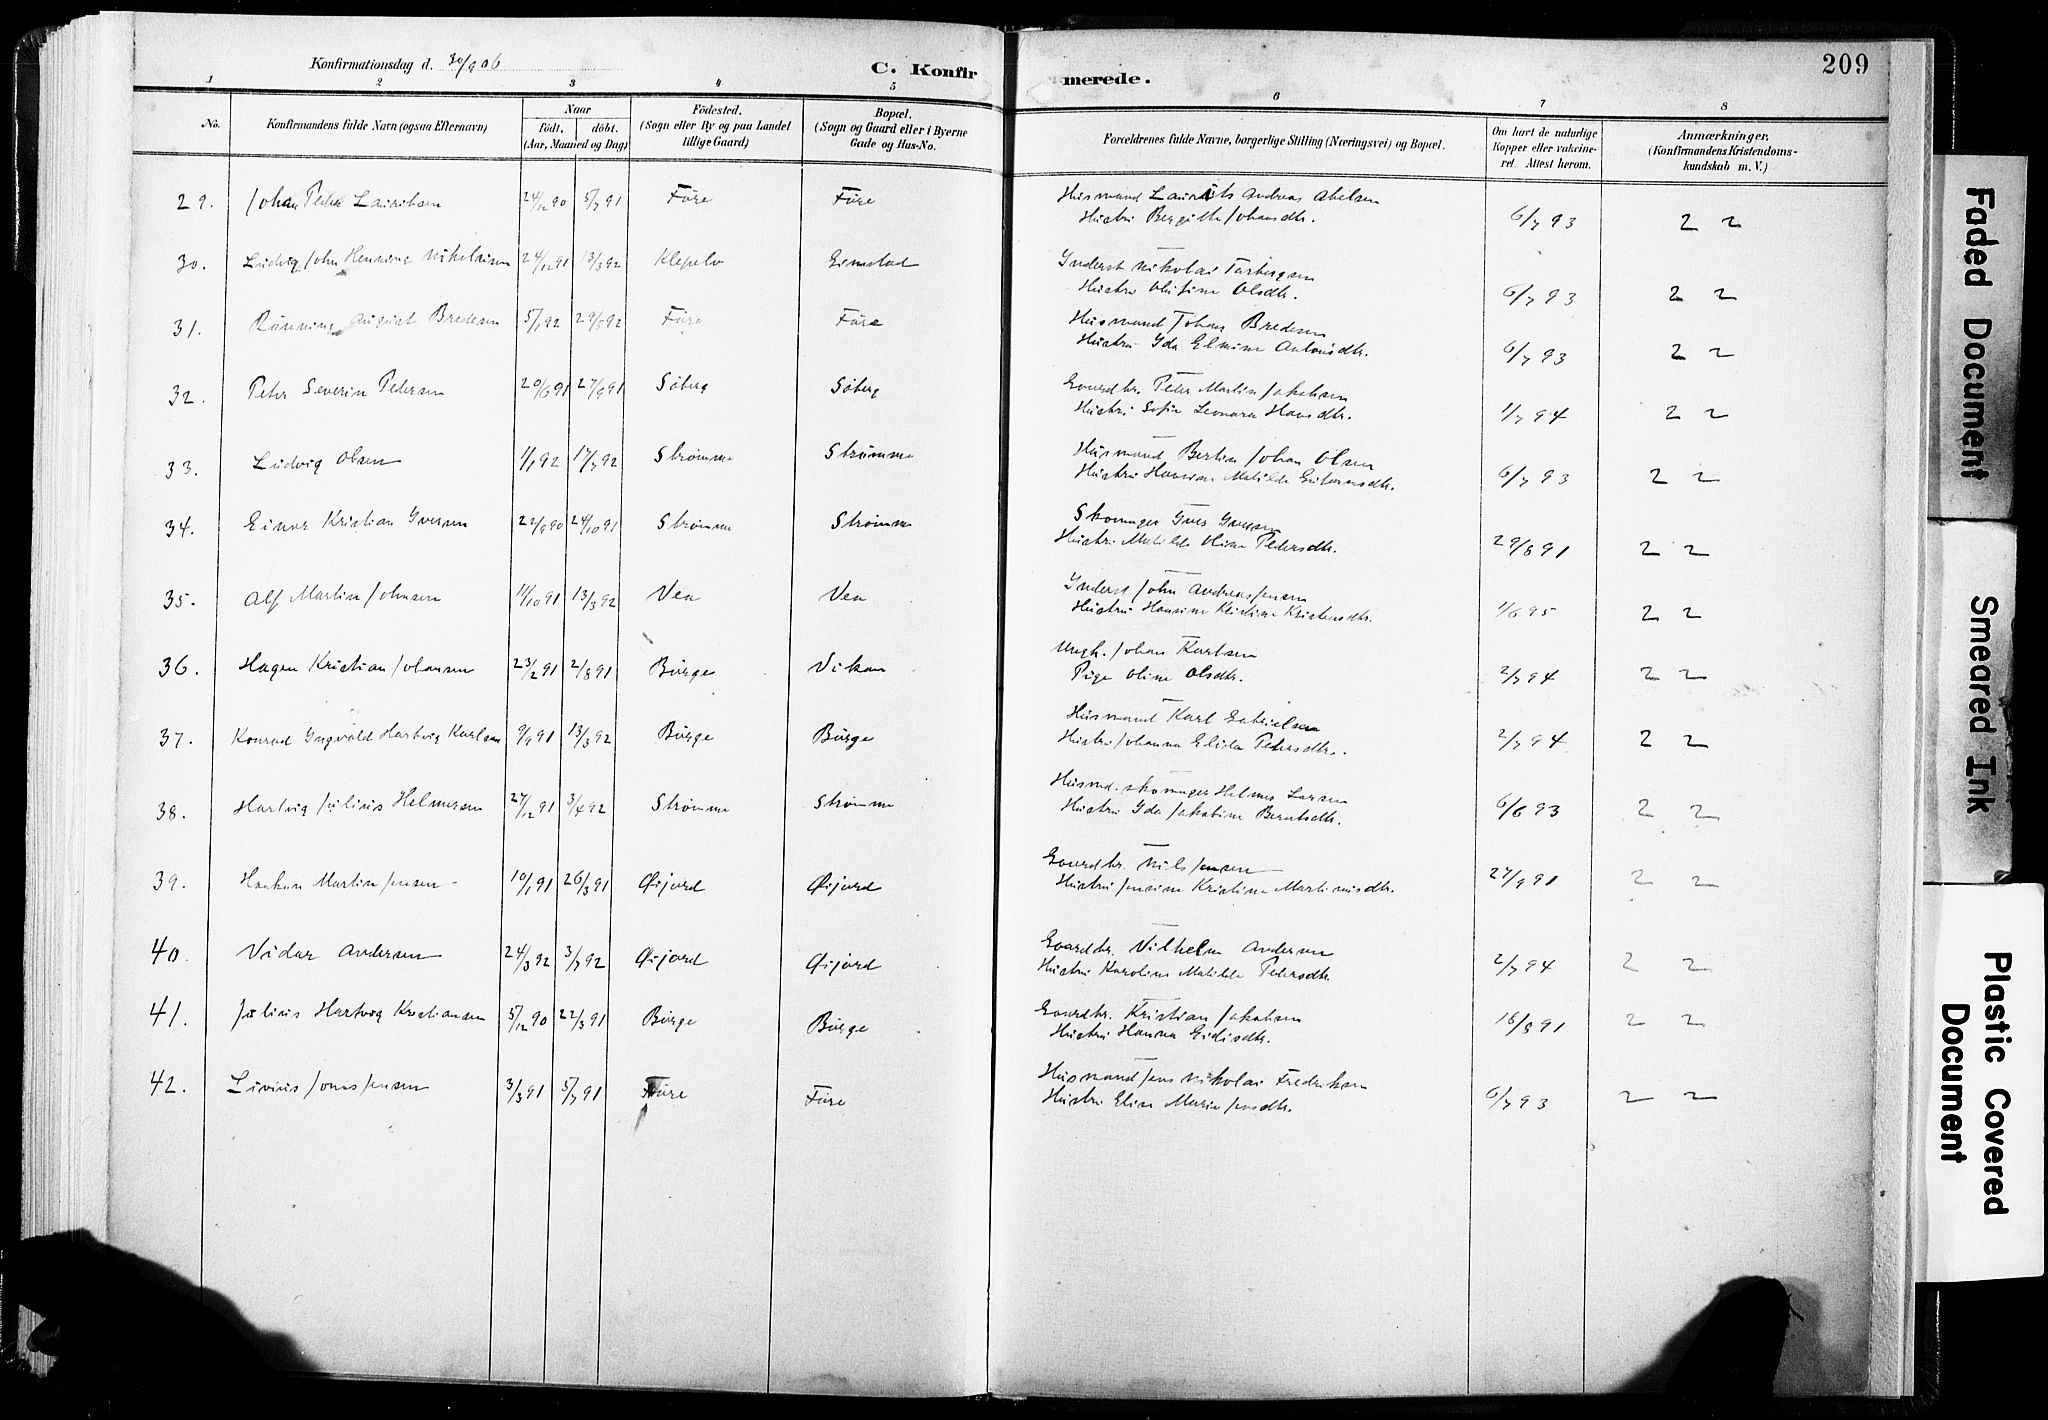 Konfirmationsdag d. 30/9 06
C. Konfirmerede.
209
1 2 3 4 5 6 7 8
No. Konfirmandens fulde Navn (ogsaa Efternavn) Naar födt. döbt. (Aar, Maaned og Dag) Födested. (Sogn eller By og paa Landet tillige Gaard) Bopæl. (Sogn og Gaard eller i Byerne Gade og Hus-No. Forældrenes fulde Navne, borgerlige Stilling (Næringsvei) og Bopæl. Om havt de naturlige Kopper eller vakcineret. Attest herom. Anmærkninger. (Konfirmandens Kristendomskundskab m. V.)
29. Johan Peder Lauritsen 24/12 90 5/7 91 Füre Füre Husmand Laurits Andreas Abelsen
Hustru Bergitte Johansdtr. 6/7 93 2 2
30. Ludvig John Henning Nikolaisen 24/12 91 13/3 92 Klepelv Einstad Inderst Nikolai Torbergsen
Hustru Olufine Olsdtr. 6/7 93 2 2
31. Rünning August Bredesen 5/1 92 29/5 92 Füre Füre Husmand Johan Bredesen
Hustru Ida Elmine Antonsdtr. 6/7 93 2 2
32. Peter Severin Pedersen 20/6 91 27/9 91 Söberg Söberg Gaardbr. Peter Martin Jakobsen
Hustru Sofie Leonora Hansdtr. 1/7 94 2 2
33. Ludvig Olsen 1/1 92 17/7 92 Strömme Strömme Husmand Bertin Johan Olsen
Hustru Matilde 6/7 93 2 2
34. Einar Kristian Iversen 22/9 90 24/10 91 Strömme Strömme Iver Iversen
Hustru Matilde Oline Pedersdtr. 29/8 91 2 2
35. Alf Martin Johnsen 11/10 91 13/3 92 Vea Vea Inderst John Andreas Jensen
Hustru Hansine Kristine Kristensdtr. 1/6 95 2 2
36. Hagen Kristian Johansen 23/2 91 2/8 91 Börge Vikan Ungk. Johan Karlsen
Pige Oline Olsdtr. 2/7 94 2 2
37. Konrad Ingvald Hartvig Karlsen 9/9 91 13/3 92 Börge Börge Husmand Karl Gabrielsen
Hustru Johanna Elida Petersdtr. 2/7 94 2 2
38. Hartvig Julius Helmersen 27/12 91 3/4 92 Strömme Strömme Husmd. Helmer Larsen
Hustru Ida Jakobine Berntsdtr. 6/6 93 2 2
39. Haakon Martin Jensen 10/1 91 26/3 91 Øijord Øijord Gaardbr. Nils Jensen
Hustru Jensine Kristine Martinusdtr. 27/9 91 2 2
40. Vidar Andersen 24/3 92 3/7 92 Øijord Øijord Gaardbr. Vilhelm Andersen
Hustru Karoline Matilde Pedersdtr. 2/7 94 2 2
41. Julius Hartvig Kristiansen 5/12 90 22/3 91 Börge Börge Gaardbr. Kristian Jakobsen
Hustru Hanna Eidisdtr. 18/8 91 2 2
42. Livius Jons Jensen 3/3 91 5/7 91 Füre Füre Husmand Jens Nikolai Fredriksen
Hustru Elise Marie Jensdtr. 6/7 93 2 2
Faded Document
Smeared Ink
Plastic Covered Document